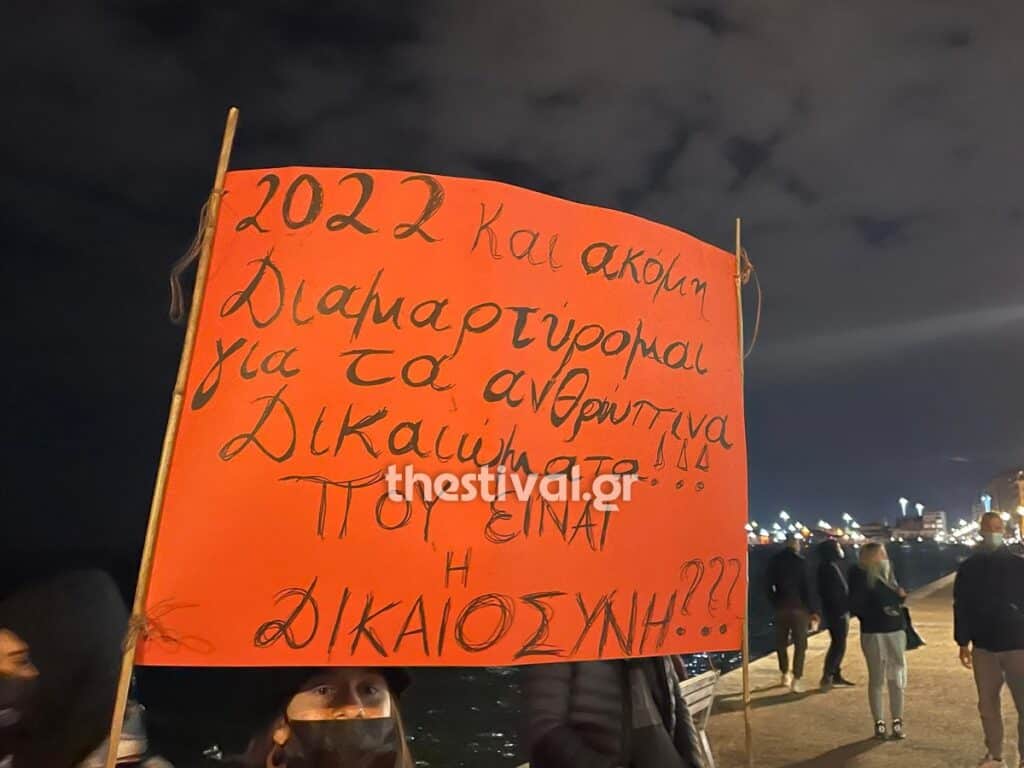 2022 Και ακόμη
Διαμαρτύρομαι
για τα ανθρώπινα
Δικαιώματα!!!...
thestival.gr
ΠΟΥ ΕΙΝΑΙ
Η
ΔΙΚΑΙΟΣΥΝΗ???...